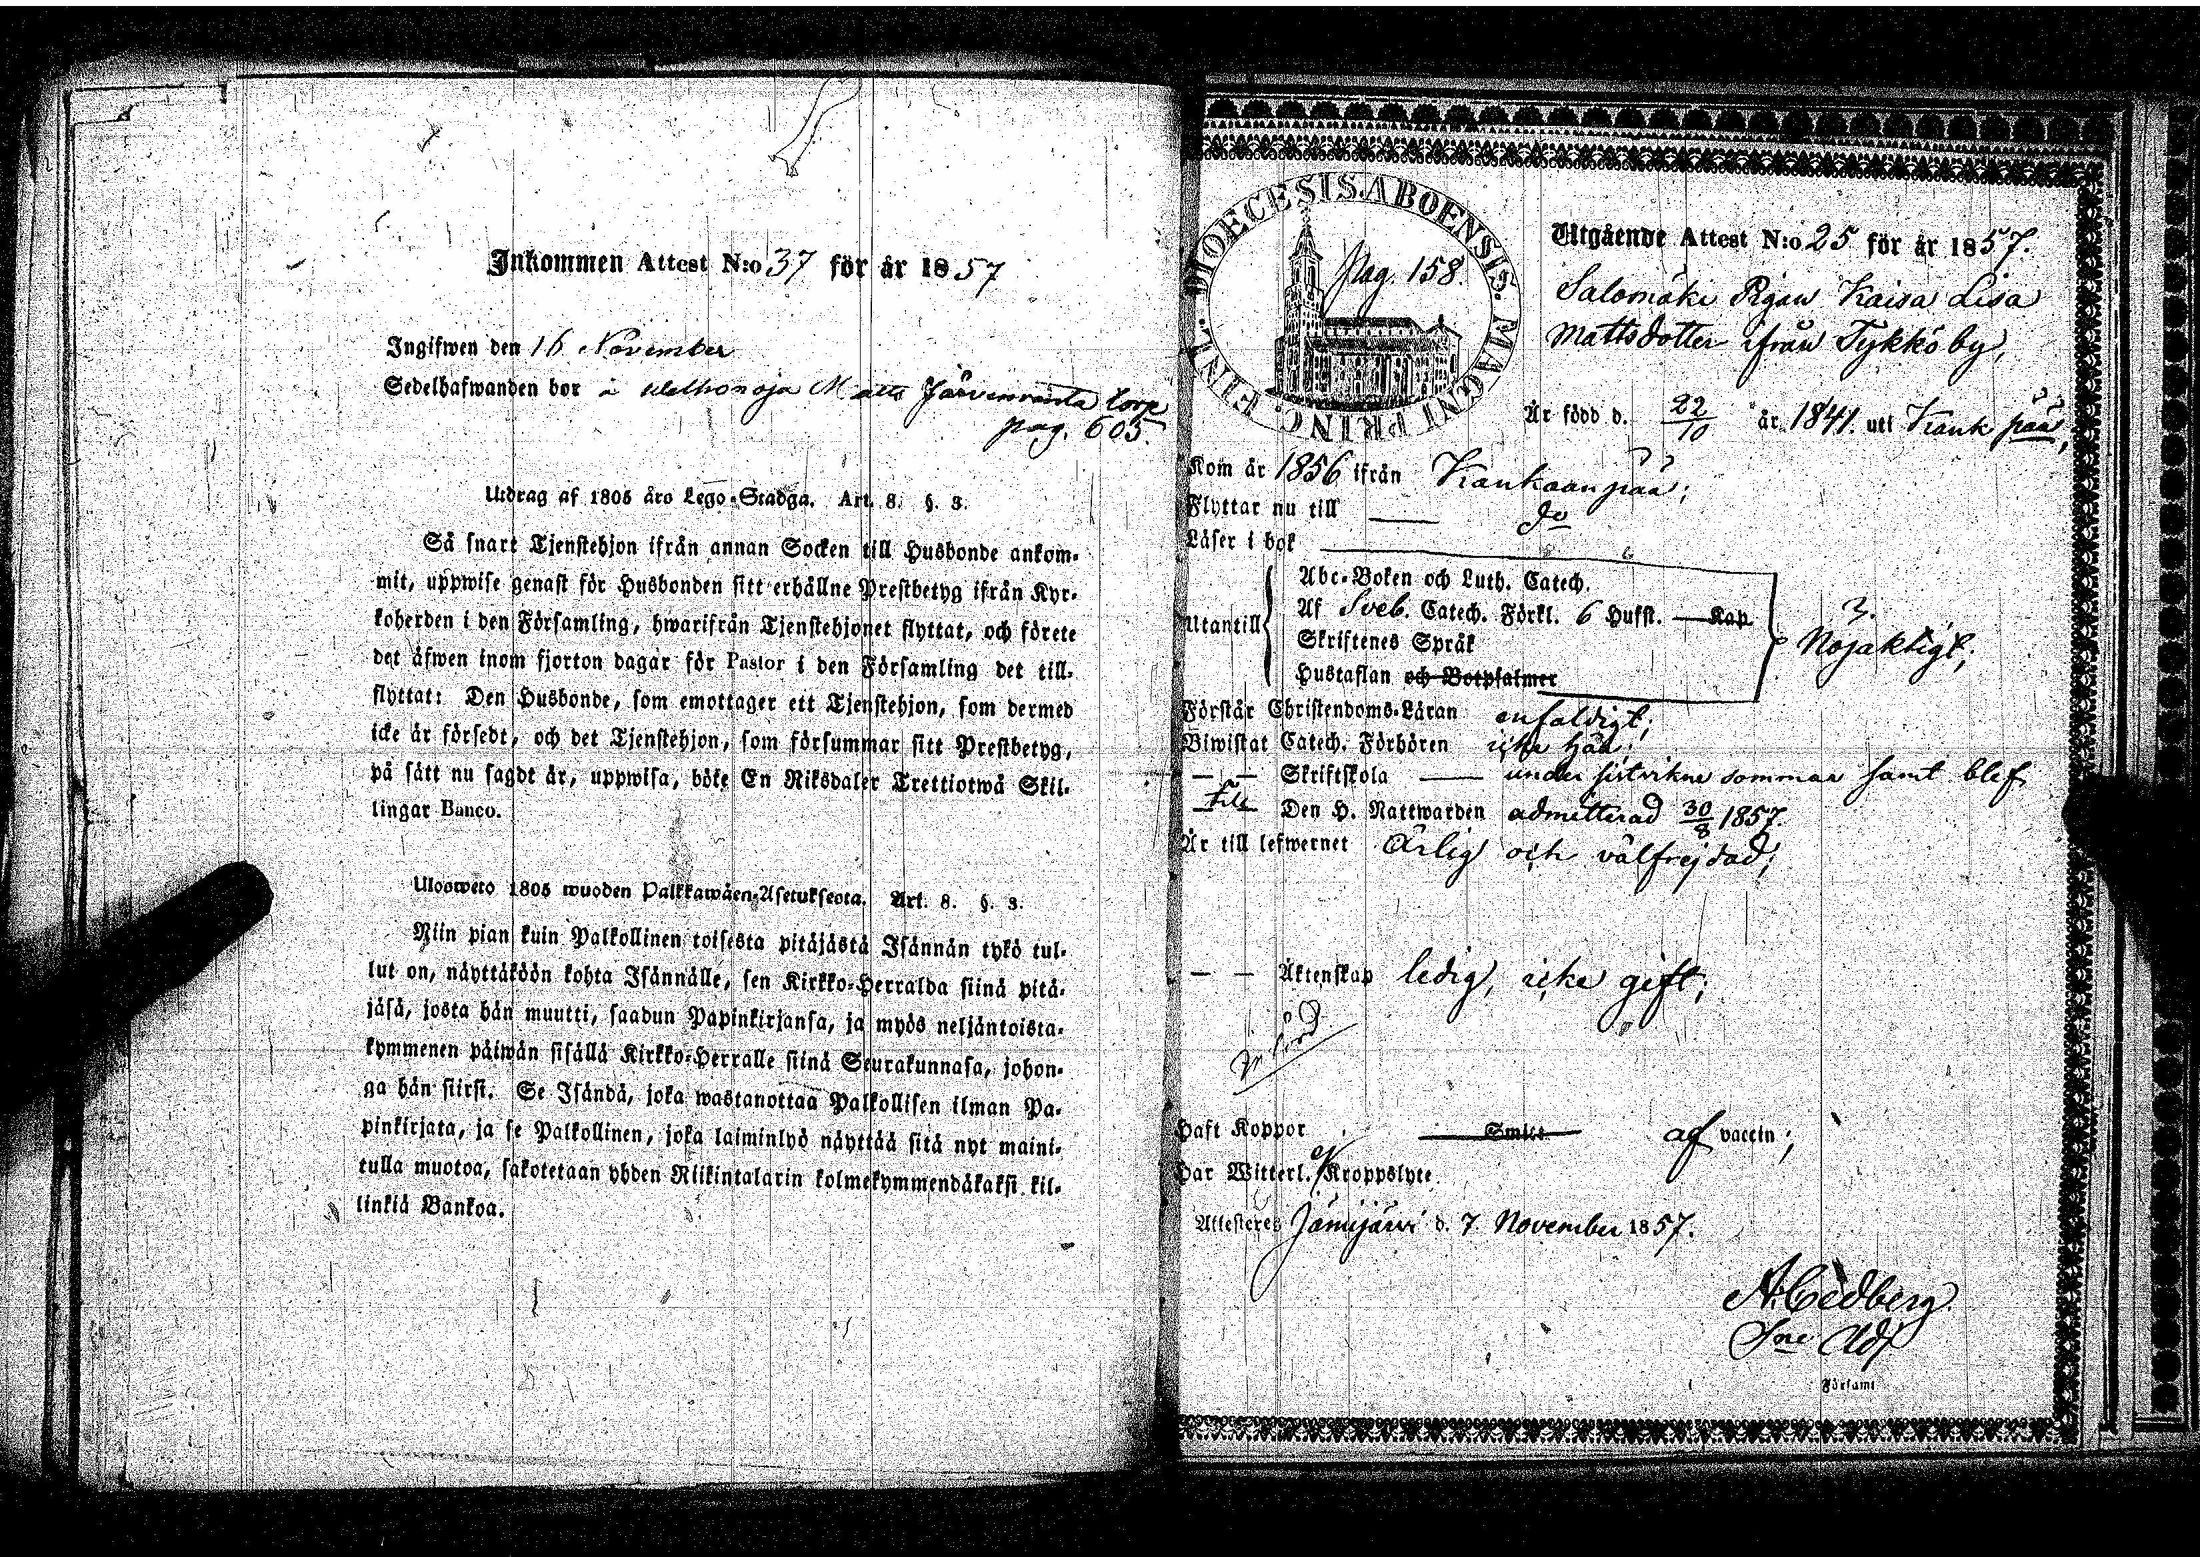 Inkommen Attest N:o 37 för år 1857
Ingifwen den 16 November
Sedelhafwanden bor å Matts Järvenranta torp
pag. 605.
Utdrag af 1805 års Lego-Stadga. Art. 8. §. 3.
Så snart Tjenstehjon ifrån annan Socken till Husbonde ankom-
mit, uppwise genast för Husbonden sitt erhållne Prestbetyg ifrån Kyr-
koherden i den Församling, hwarifrån Tjenstehjonet flyttat, och förete
det äfwen inom fjorton dagar för Pastor i den Församling det till-
flyttat: Den Husbonde, som emottager ett Tjenstehjon, som dermed
icke är försedt, och det Tjenstehjon, som försummar sitt Prestbetyg,
på sätt nu sagdt är, uppwisa, böte En Riksdaler Trettiotwå Skil-
lingar Banco.
Ulosweto 1805 wuoden Palkkawäen-Asetuksesta. Art. 8. §. 3.
Niin pian kuin Palkollinen toisesta pitäjästä Isännän tykö tul-
lut on, näyttäköön kohta Isännälle, sen Kirkko-Herralda siinä pitä-
jäsä, josta hän muutti, saadun Papinkirjansa, ja myös neljäntoista-
kymmenen päiwän sisällä Kirkko-Herralle siinä Seurakunnasa, johon-
ga hän siirsi. Se Isändä, joka wastanottaa Palkollisen ilman Pa-
pinkirjata, ja se Palkollinen, joka laiminlyö näyttää sitä nyt maini-
tulla muotoa, sakotetaan yhden Riikintalarin kolmekymmendäkaksi kil-
linkiä Bankoa.
DIOECESIS. ABOENSIS. MAGNI PRINC. FINL.
pag. 158.
Utgående Attest N:o 25 för år 1857.
Salomäki Pigan Kaisa Lisa
Mattsdotter ifrån Tykkö by,
Är född d. 22/10 år 1841. uti Kankpää,
Kom år 1856 ifrån Kankaanpää;
Flyttar nu till — do
Läser i bok
Abc-Boken och Luth. Catech.
Af Sveb. Catech. Förkl. 6 Hufst. — Kap
Utantill
Skriftenes Språk
Hustaflan och Botpsalmer
3.
Nöjaktigt;
Förstår Christendoms-Läran enfaldigt;
Biwistat Catech. Förhören icke här.
— — Skriftskola — under sistvikne sommar samt blef
Till Den H. Nattwarden admitterad 30/8 1857.
Är till lefwernet Ärlig och välfrejdad;
— — Äktenskap ledig, icke gift;
Haft Koppor Smitt af vaccin;
Har Witterl. Kroppslyte
Attesteres Jämijärvi d. 7 November 1857.
A. Cedberg.
Församl